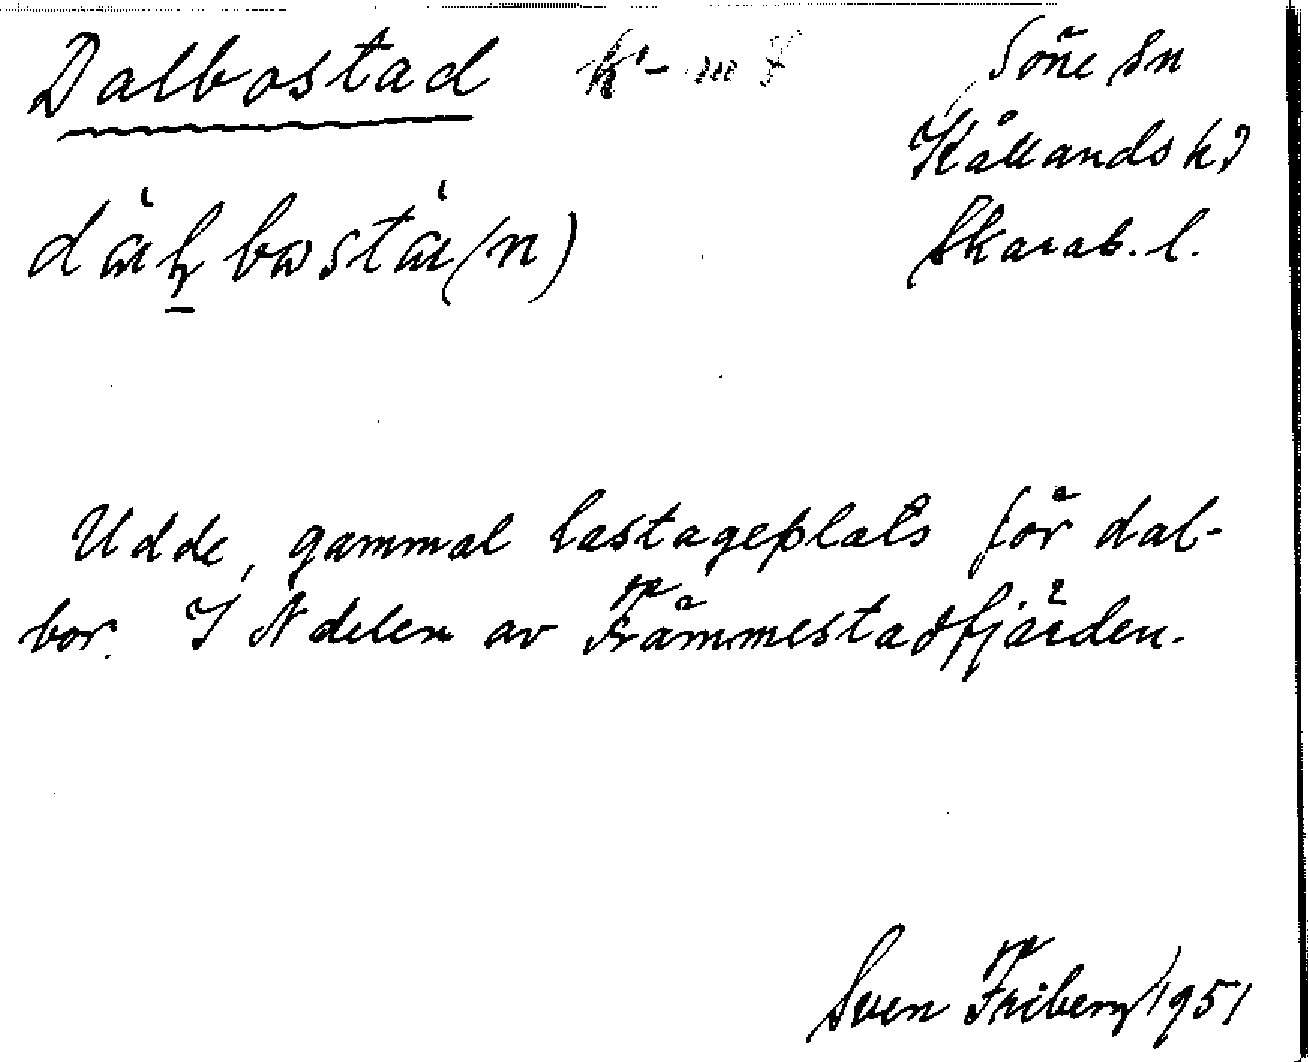 Dalbostad
Söne sn
Kållands hd
Skarab. l.
Udde, gammal lastageplats för dal-
bor. I N delen av Främmestadfjärden.
Sven Friberg 1951